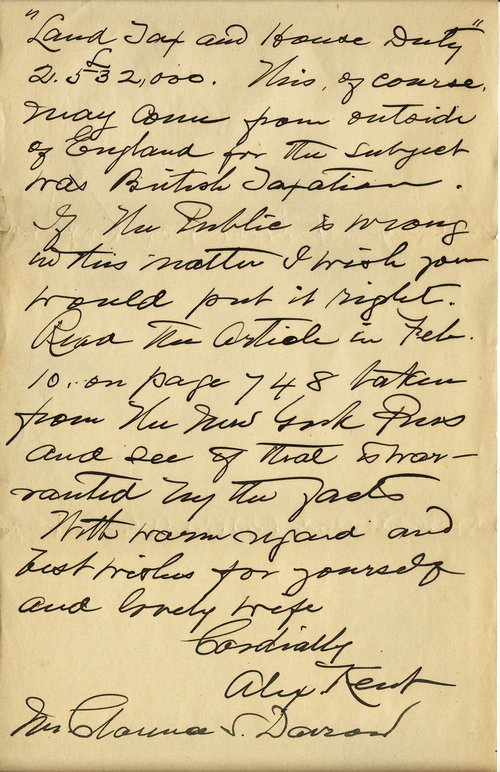 "Land Tax and House Duty"
£2.532,000. This, of course,
may come from outside
of England for the subject
was British Taxation.
If the Public is wrong
in this matter I wish you
would put it right.
Read the Article in Feb.
10. on page 748 taken
from the New York Press
and see if that is war-
ranted by the facts
With warm regard and
best wishes for yourself
and lovely wife
Cordially
Alex. Kent
Mr Clarence S. Darrow